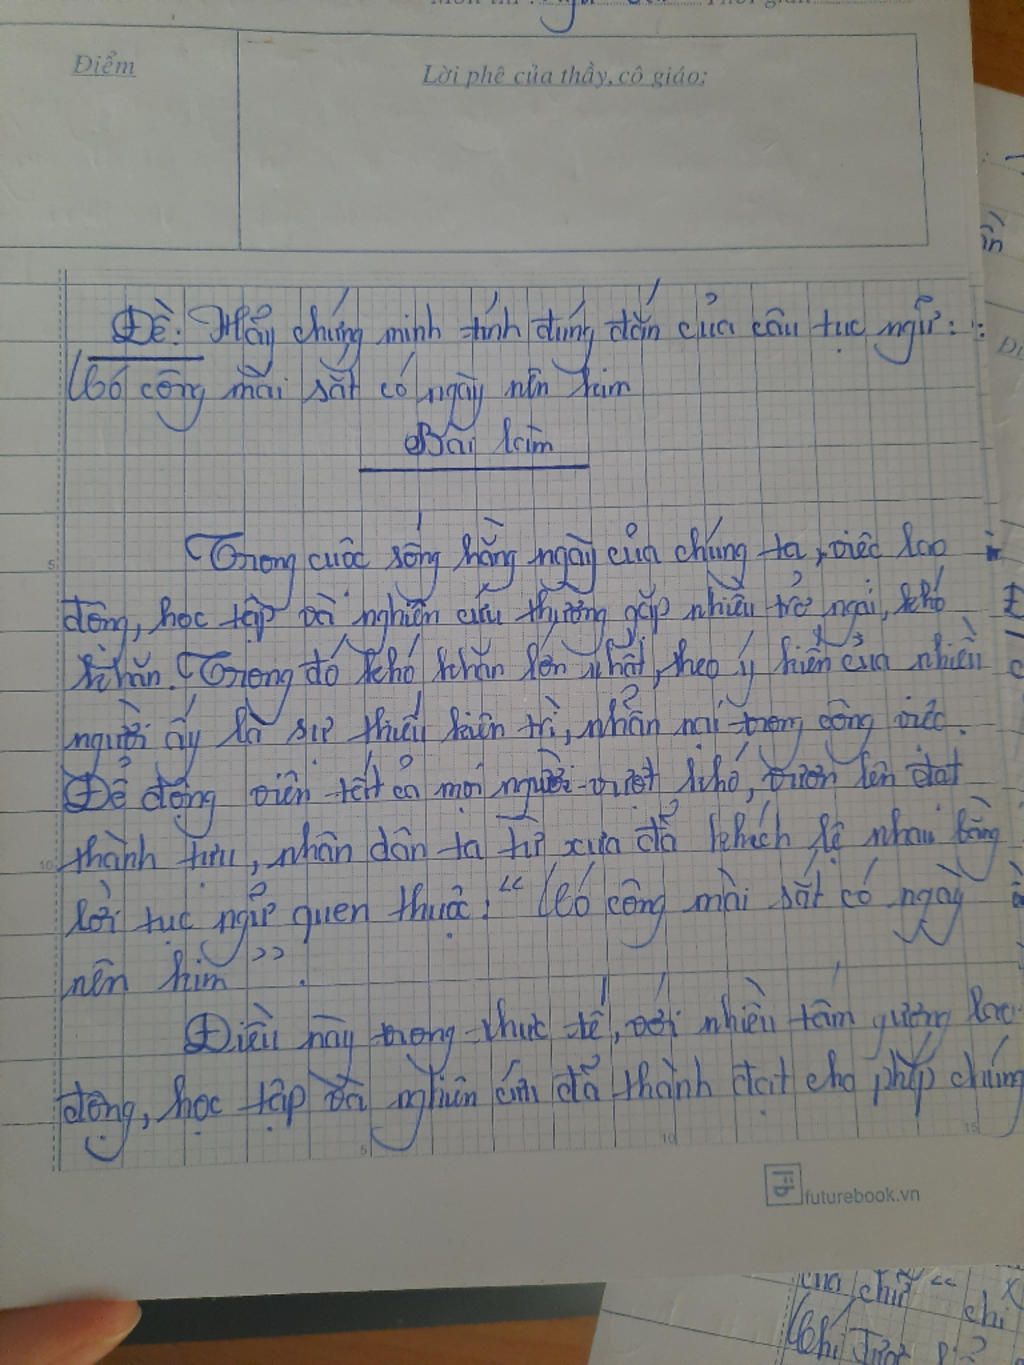 Điểm
Lời phê của thầy, cô giáo:
Đề: Hãy chứng minh tính đúng đắn của câu tục ngữ:
Có công mài sắt có ngày nên kim
Bài làm
Trong cuộc sống hằng ngày của chúng ta, việc lao
động, học tập và nghiên cứu thường gặp nhiều trở ngại, khó
khăn. Trong đó khó khăn lớn nhất, theo ý kiến của nhiều
người ấy là sự thiếu kiên trì, nhẫn nại trong công việc.
Để động viên tất cả mọi người vượt khó, vươn lên đạt
thành tựu, nhân dân ta từ xưa đã khích lệ nhau bằng
lời tục ngữ quen thuộc: "Có công mài sắt có ngày
nên kim".
Điều này trong thực tế, với nhiều tấm gương lao
động, học tập và nghiên cứu đã thành đạt cho phép chúng
5
10
5
10
15
futurebook.vn
của chữ "
chi